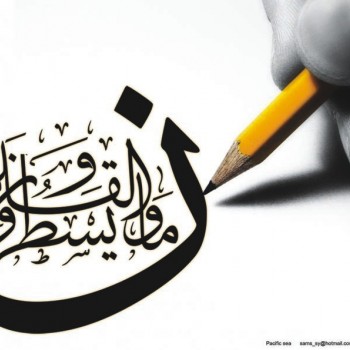 ن والقلم وما يسطرون
Pacific sea sams_sy@hotmail.co